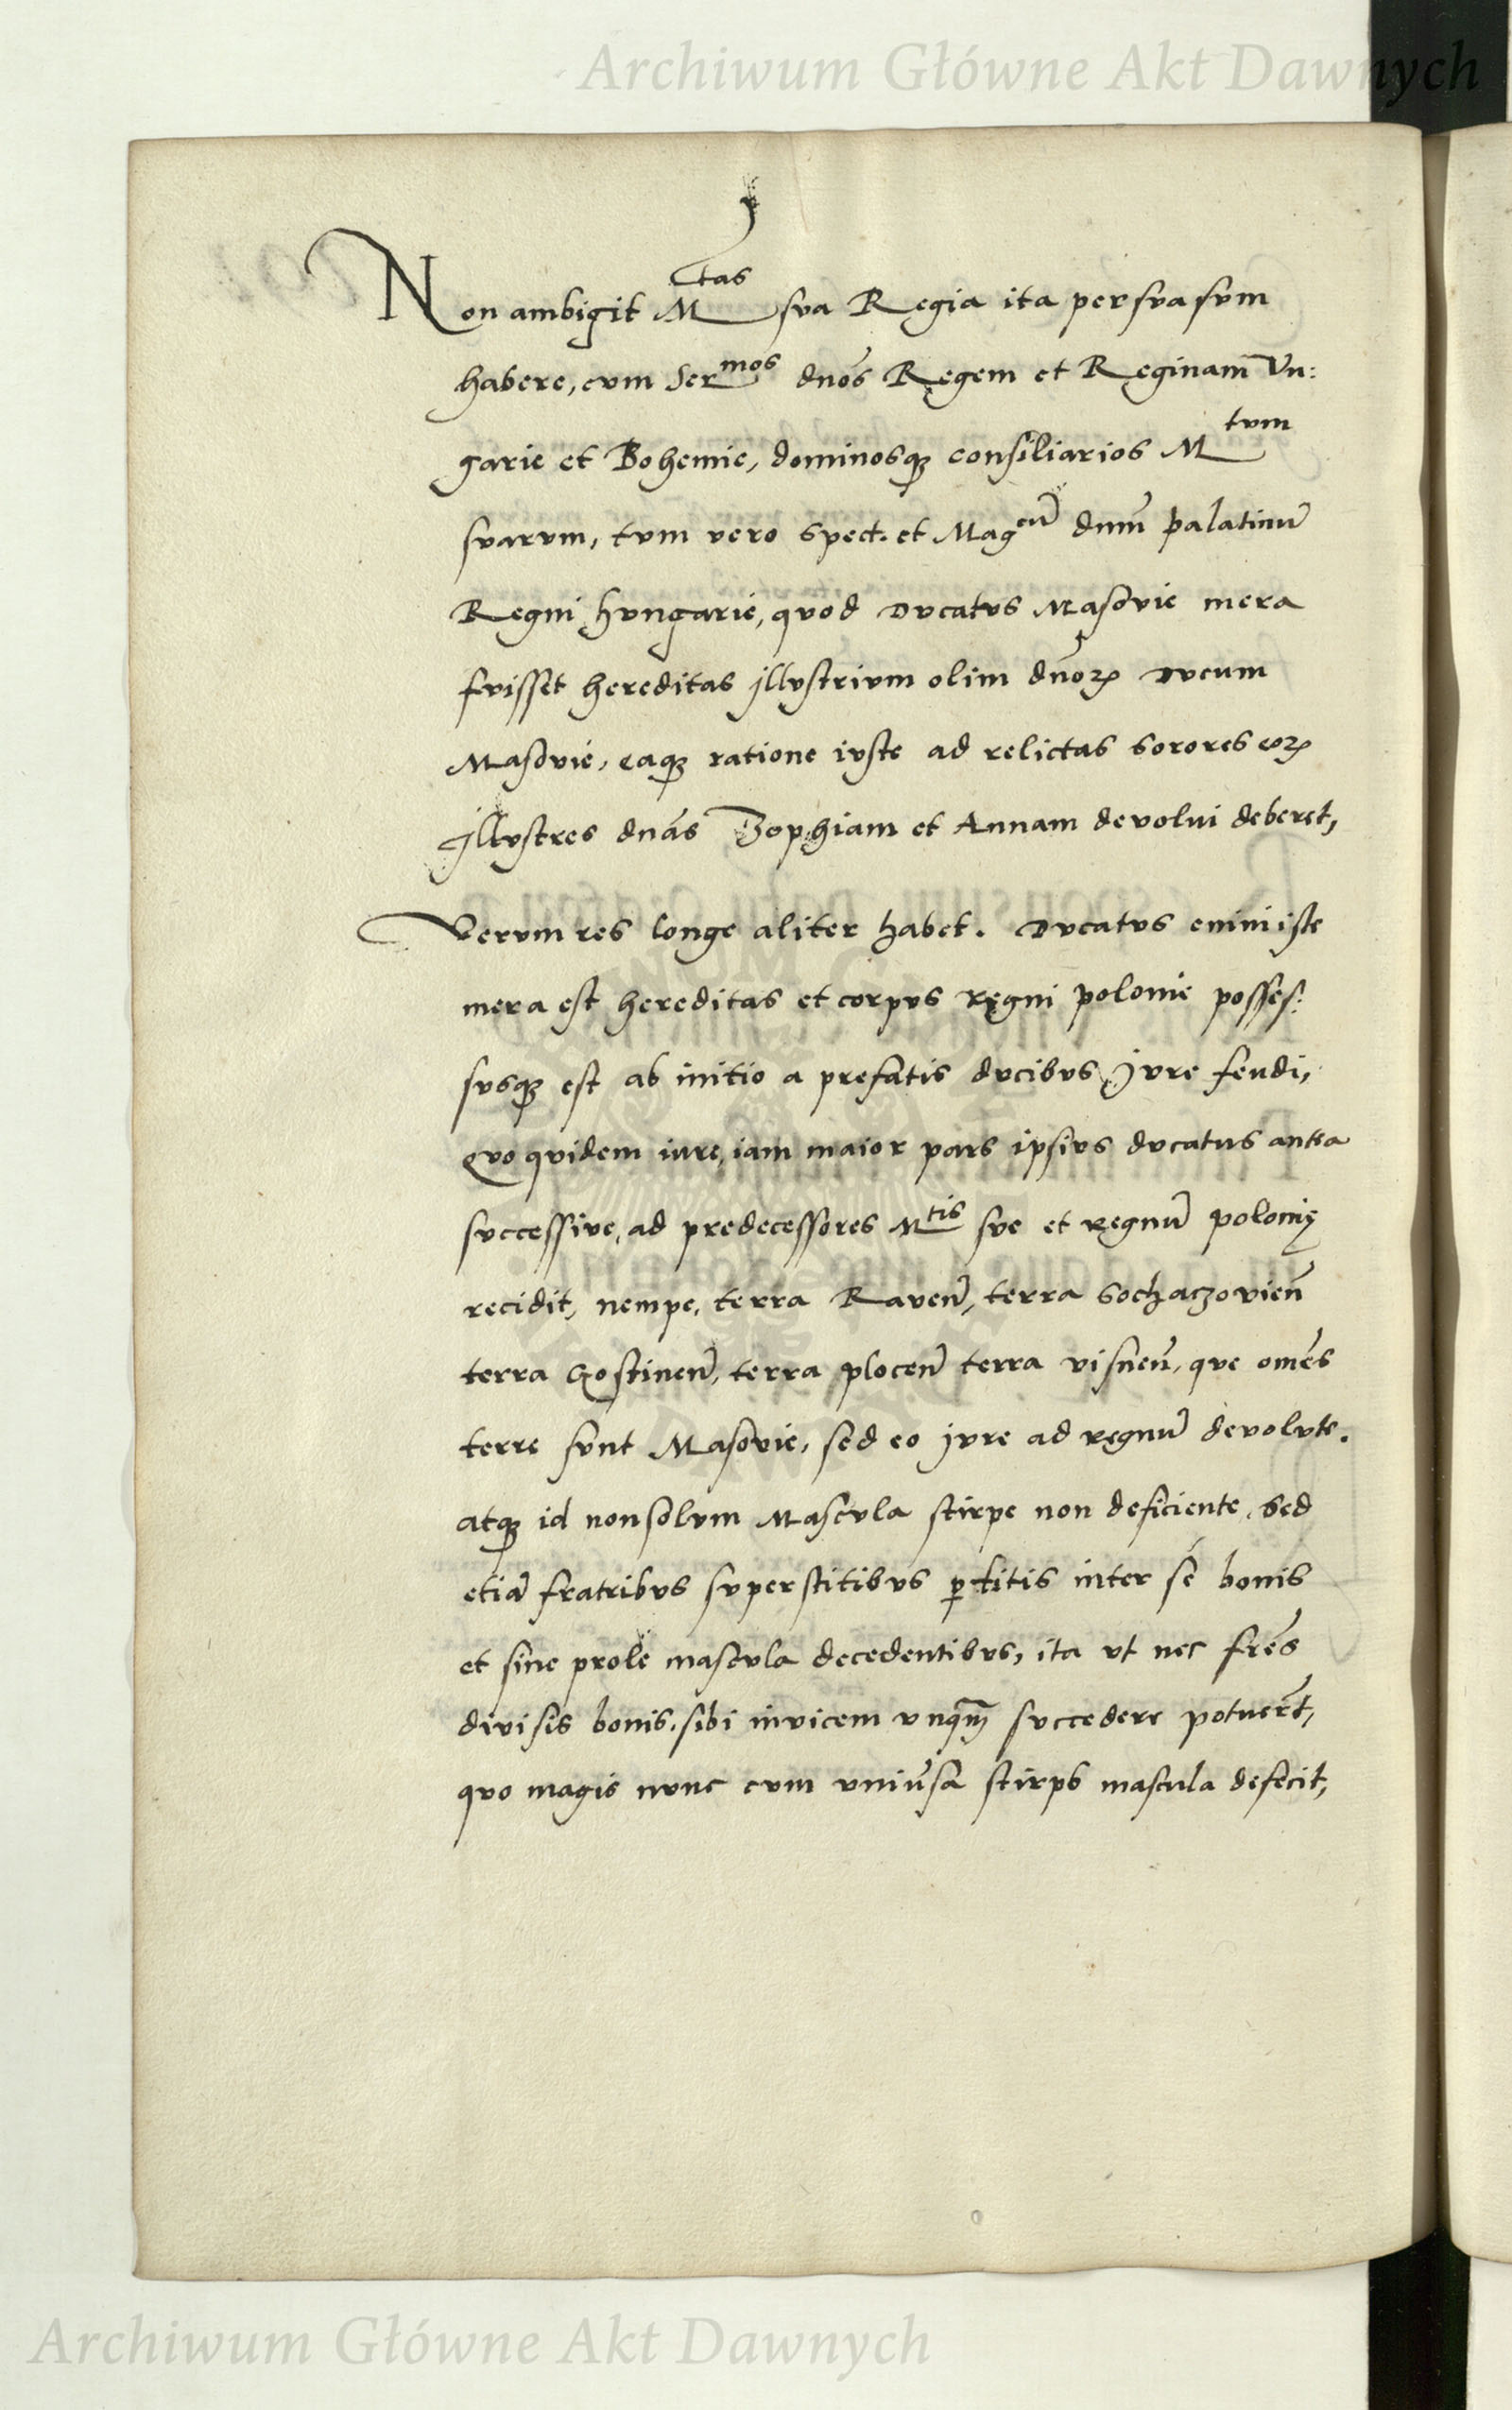 Archiwum Główne Akt Dawnych
Non ambigit Mtas sva Regia ita persvasvm
habere, cvm Sermos dnōs Regem et Reginam Vn:
garie et Bohemie, dominosqꝫ consiliarios Mtvm
svarvm, tvm vero spect. et Magcū dnm̄ palatinū
Regni hvngarie, qvod Dvcatvs Masovie mera
fvisset hereditas jllvstrivm olim dnōꝝ Dvcum
Masovie, eaqꝫ ratione ivste ad relictas sorores eoꝝ
jllvstres dnās Zophiam et Annam devolui deberet,
Vervm res longe aliter habet. Dvcatvs enim iste
mera est hereditas et corpvs Ręgni polonie posses:
svsqꝫ est ab initio a prefatis dvcibvs jvre feudi,
qvo qvidem iure, iam maior pars ipsivs dvcatus antea
svccessive, ad predecessores Mtis sve et Ręgnū polonię
recidit, nempe, terra Raven̄, terra Sochaczovien̄
terra Gostinen̄, terra plocen̄ terra visnen̄, qve omēs
terre svnt Masovie, sed eo jvre ad ręgnū devolvte.
atqꝫ id non solvm Mascvla stirpe non deficiente, sed
etiā fratribvs svperstitibvs ꝑtitis inter se bonis
et sine prole mascvla decedentibvs, ita vt nec frēs
divisis bonis, sibi invicem vnqm̄ svccedere potuerīt,
qvo magis nvnc cvm vniūsa stirps mascula defecit,
Archiwum Główne Akt Dawnych